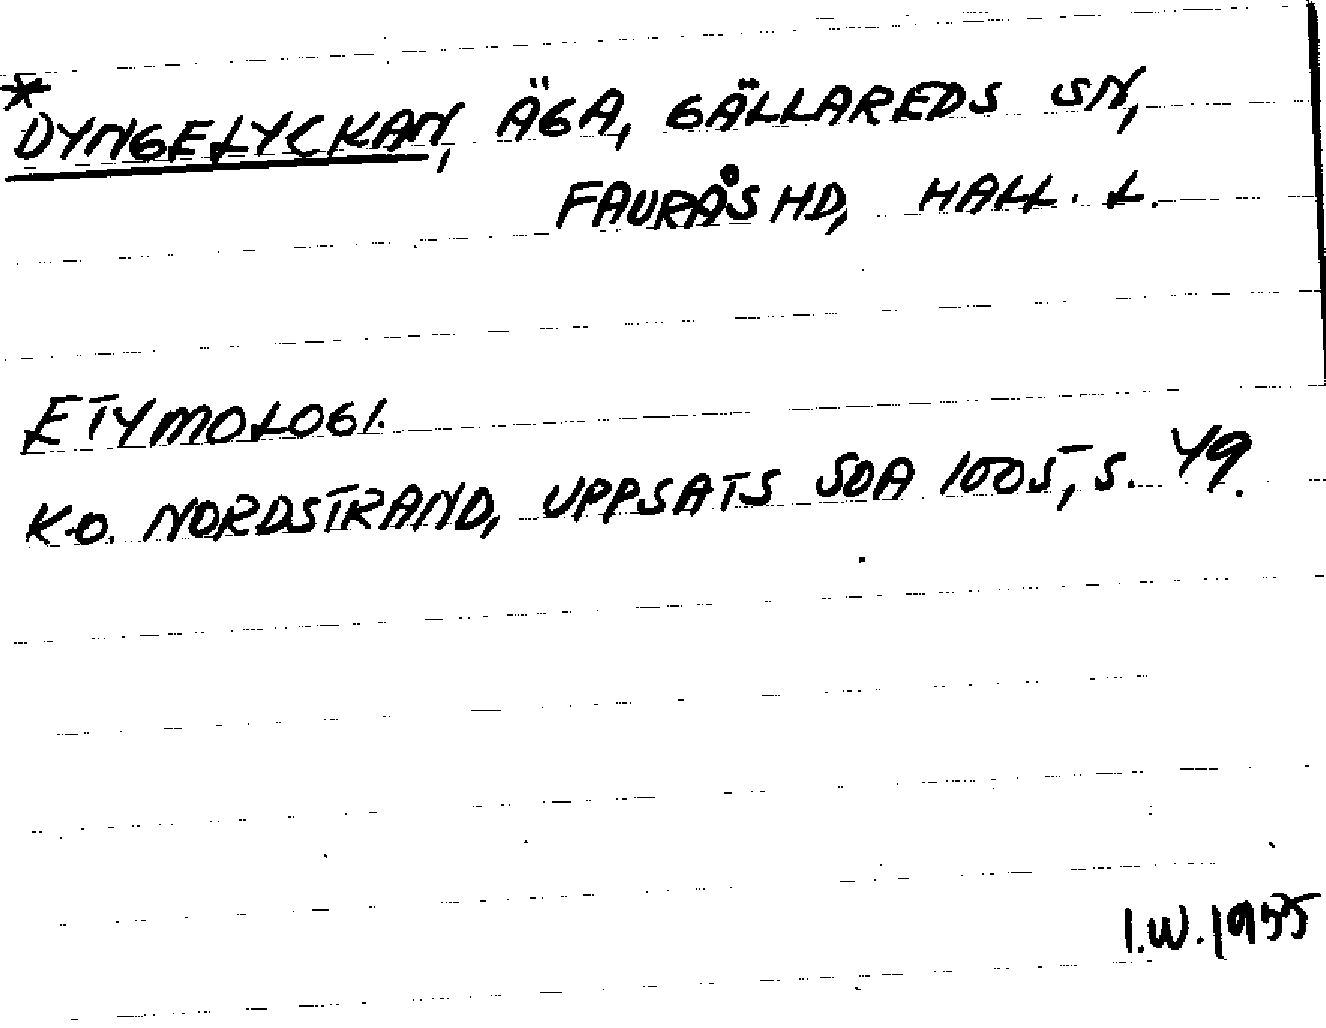 *DYNGELYCKAN, ÄGA, GÄLLAREDS SN,
FAURÅS HD, HALL. L.
ETYMOLOGI.
K.O. NORDSTRAND, UPPSATS SOA 1005, S. 49.
I.W. 1955